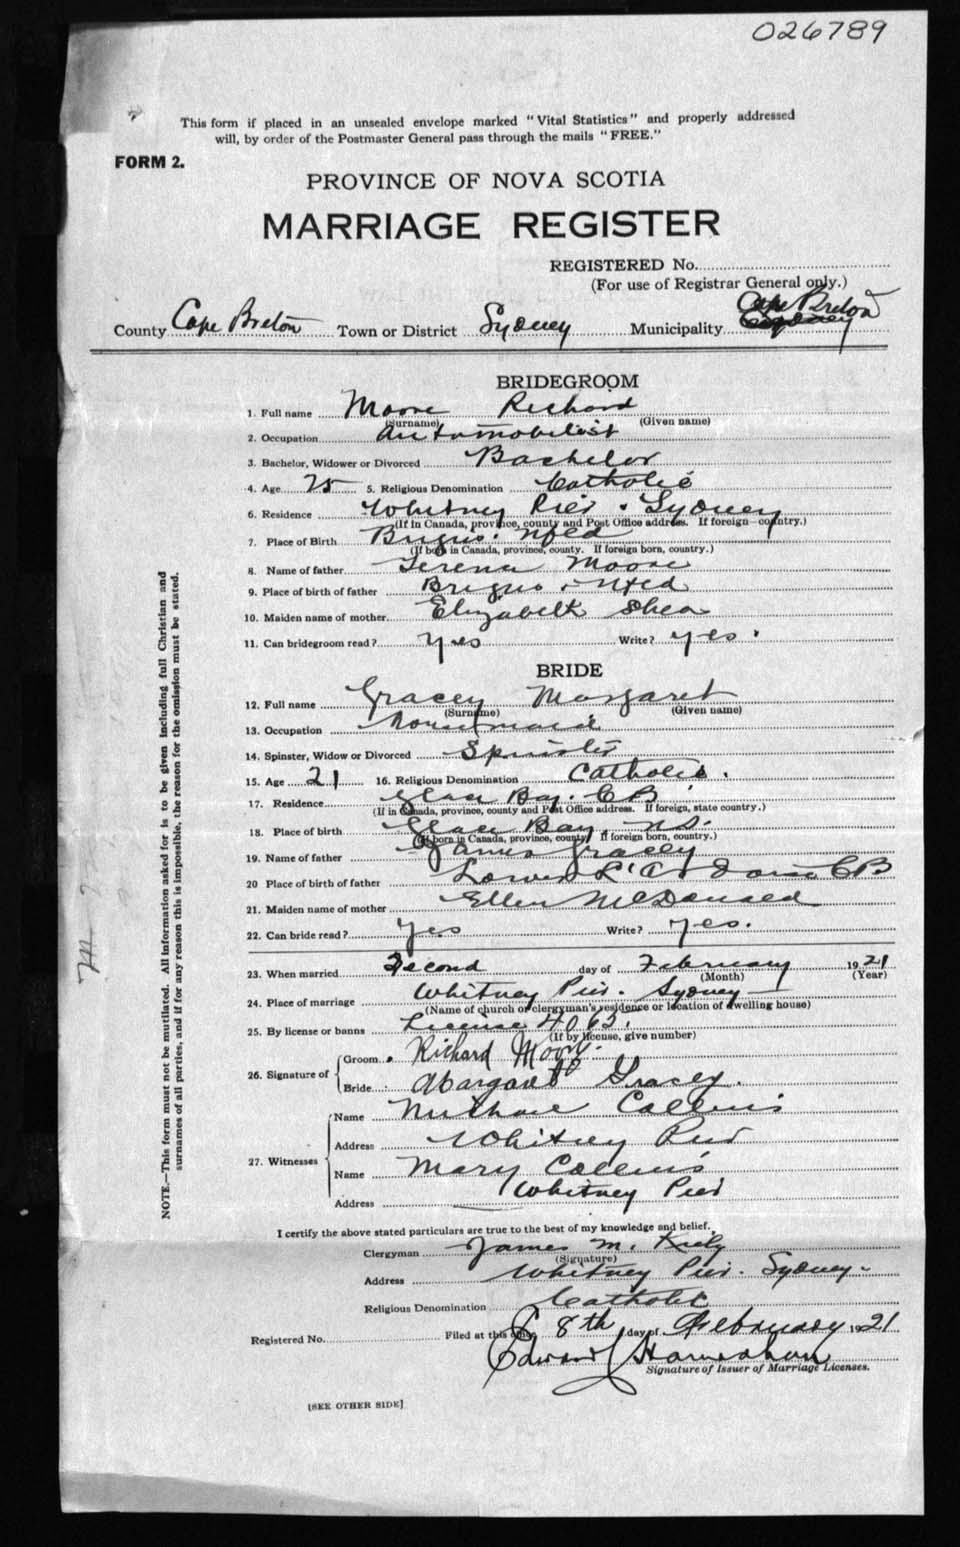 026789
This form if placed in an unsealed envelope marked "Vital Statistics" and properly addressed
will, by order of the Postmaster General pass through the mails "FREE."
FORM 2.
PROVINCE OF NOVA SCOTIA
MARRIAGE REGISTER
REGISTERED No.
(For use of Registrar General only.)
County Cape Breton Town or District Sydney Municipality Cape Breton
BRIDEGROOM
1. Full name Moore Richard
(Surname) (Given name)
2. Occupation Automobilist
3. Bachelor, Widower or Divorced Bachelor
4. Age 25 5. Religious Denomination Catholic
6. Residence Whitney Pier. Sydney
(If in Canada, province, county and Post Office address. If foreign country.)
7. Place of Birth Brigus. Nfld
(If born in Canada, province, county. If foreign born, country.)
8. Name of father Moore
9. Place of birth of father Brigus. Nfld
10. Maiden name of mother Elizabeth Shea
11. Can bridegroom read? yes Write? yes.
BRIDE
12. Full name Gracey Margaret
(Surname) (Given name)
13. Occupation Housemaid
14. Spinster, Widow or Divorced Spinster
15. Age 21 16. Religious Denomination Catholic.
17. Residence Glace Bay. C B.
(If in Canada, province, county and Post Office address. If foreign, state country.)
18. Place of birth Glace Bay, N.S.
(If born in Canada, province, county. If foreign born, country.)
19. Name of father James Gracey
20 Place of birth of father Lower L'Ardoise CB
21. Maiden name of mother Ellen McDonald
22. Can bride read? Yes Write? Yes.
23. When married Second day of February 1921
(Month) (Year)
24. Place of marriage Whitney Pier. Sydney
(Name of church or clergyman's residence or location of dwelling house)
25. By license or banns License 4063.
(If by license, give number)
26. Signature of Groom Richard Moore.
Bride Margaret Gracey.
27. Witnesses Name Collins
Address Whitney Pier
Name Mary Collins
Address Whitney Pier
I certify the above stated particulars are true to the best of my knowledge and belief.
Clergyman James M. Kiely
(Signature)
Address Whitney Pier. Sydney
Religious Denomination Catholic
Registered No. Filed at this office 8th day of February 1921
Edward Hanrahan
Signature of Issuer of Marriage Licenses.
[SEE OTHER SIDE]
NOTE.—This form must not be mutilated. All information asked for is to be given including full Christian and
surnames of all parties, and if for any reason this is impossible, the reason for the omission must be stated.